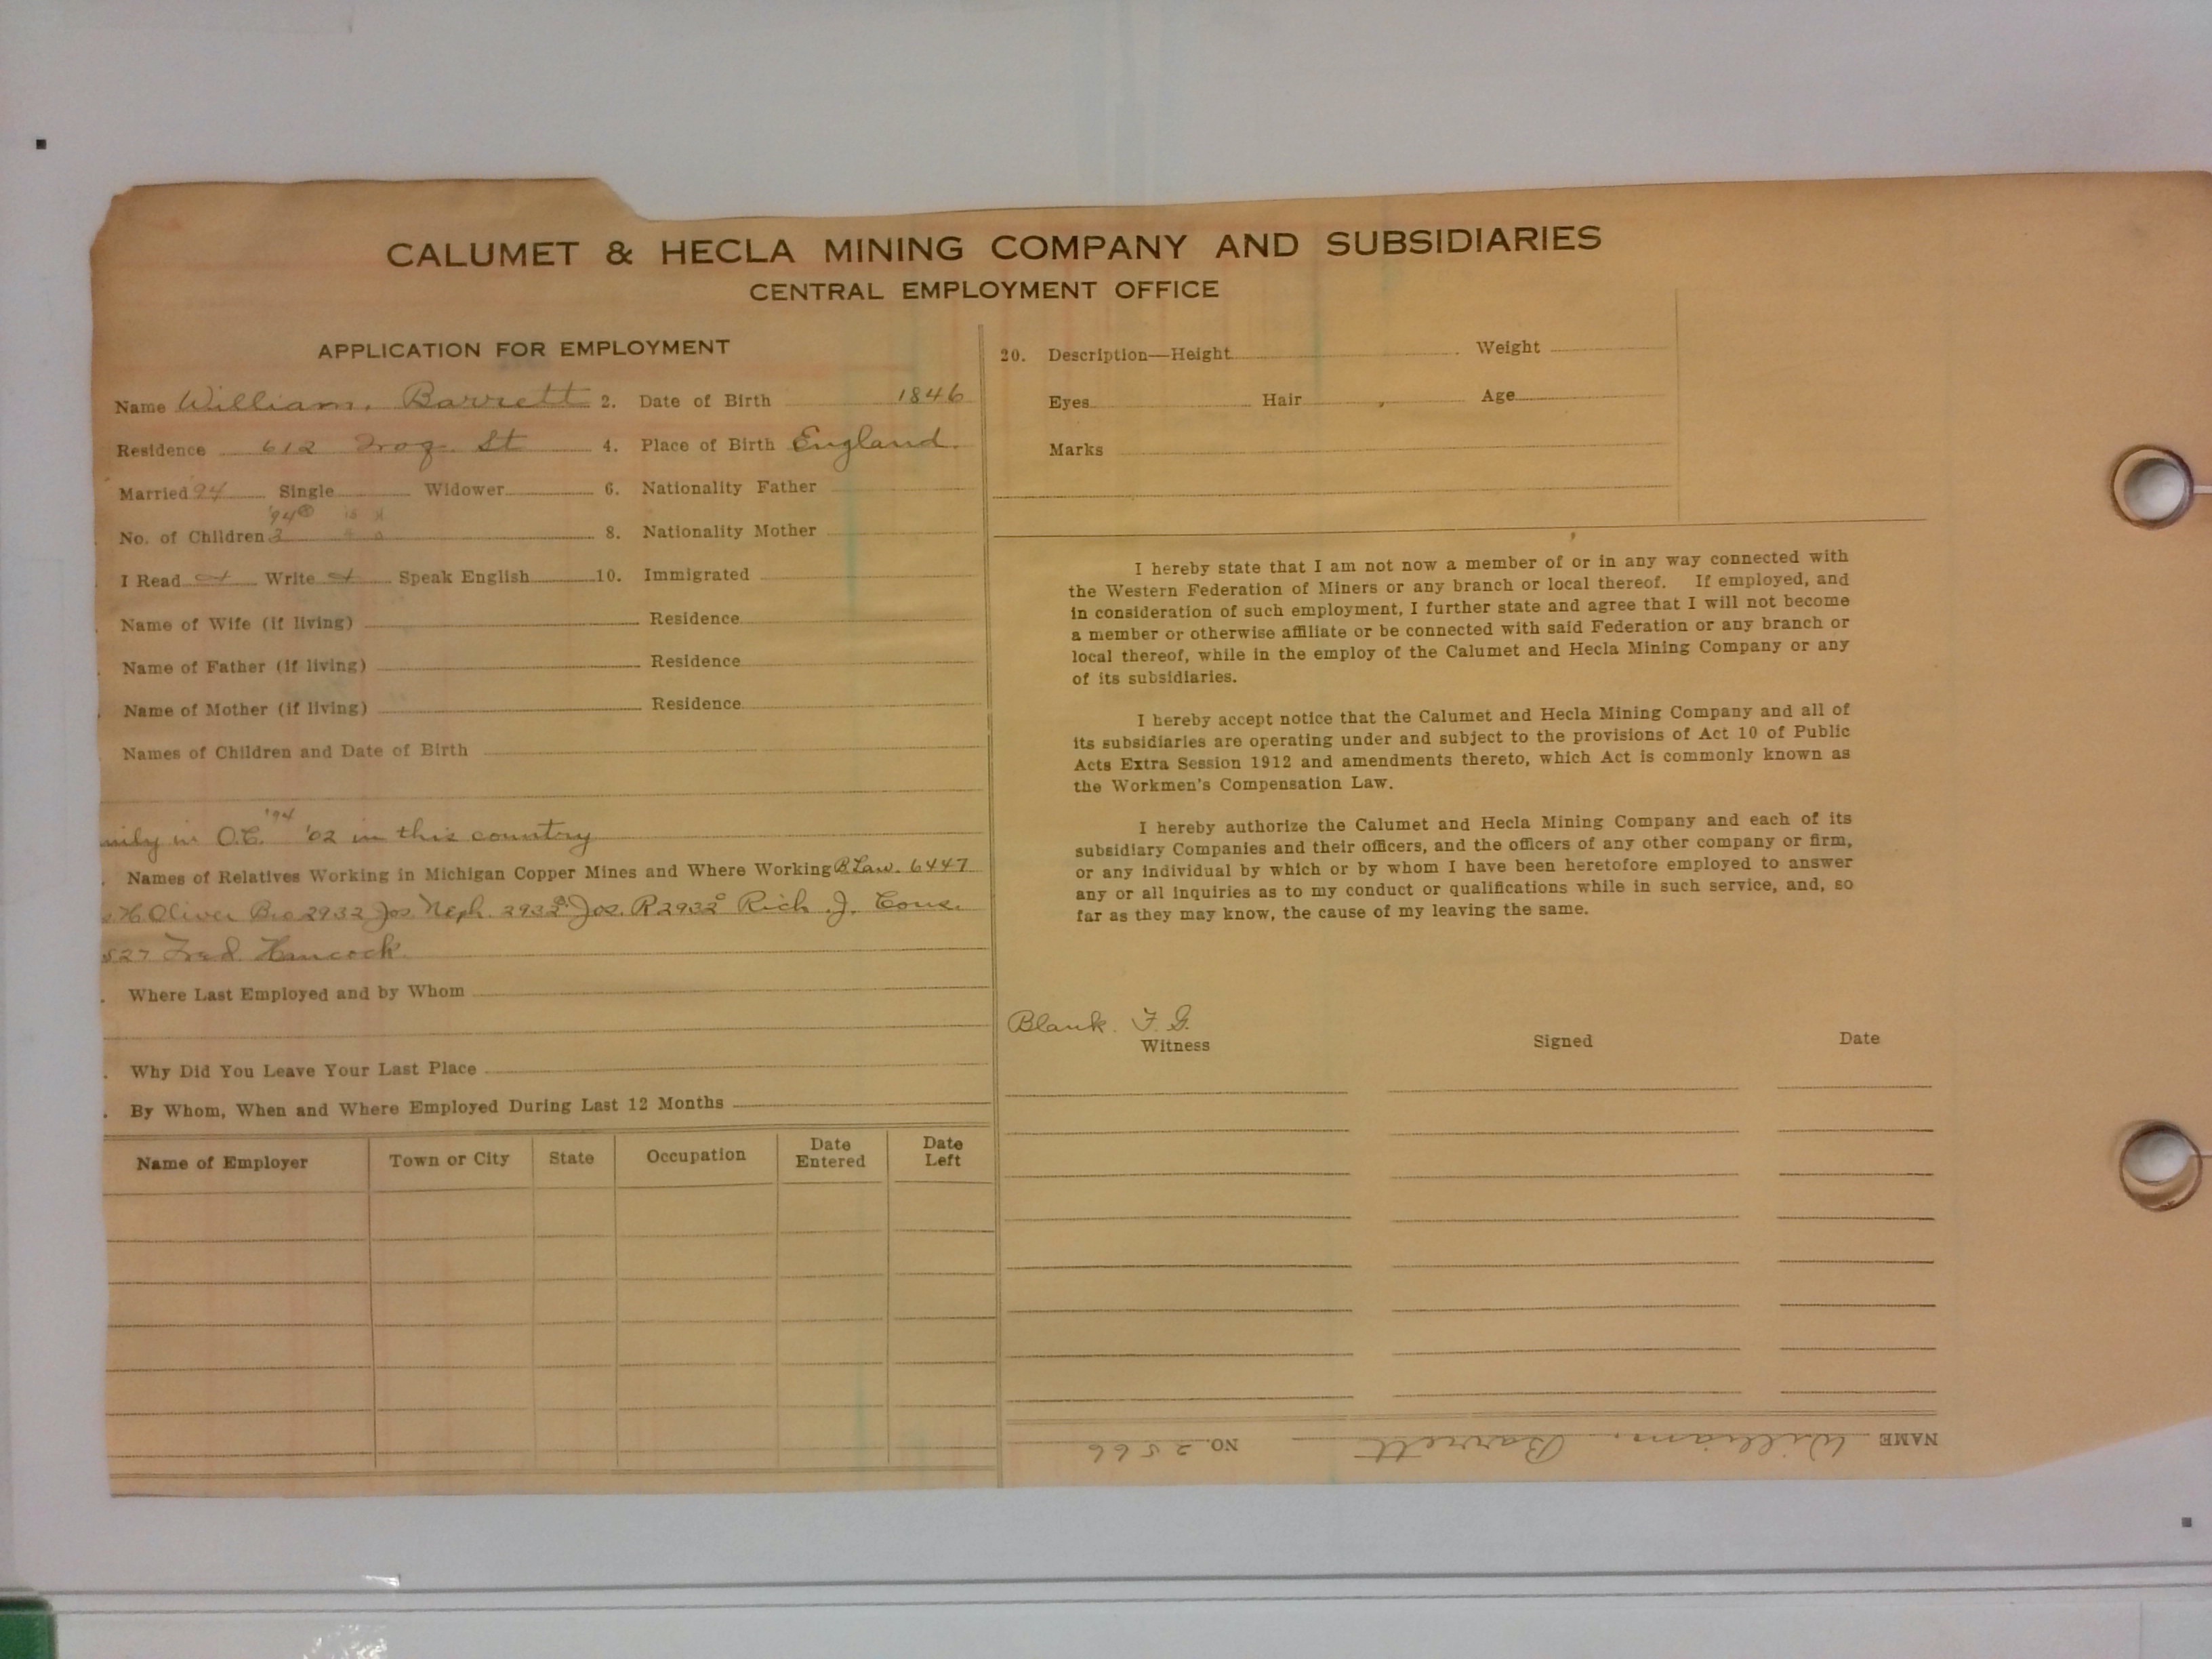 CALUMET & HECLA MINING COMPANY AND SUBSIDIARIES
CENTRAL EMPLOYMENT OFFICE
APPLICATION FOR EMPLOYMENT
Name William, Barrett 2. Date of Birth 1846
Residence 612 St 4. Place of Birth England.
Married 94 Single Widower 6. Nationality Father
'94
No. of Children 3 8. Nationality Mother
I Read Write Speak English 10. Immigrated
Name of Wife (if living) Residence
Name of Father (if living) Residence
Name of Mother (if living) Residence
Names of Children and Date of Birth
'94
mily in O.C. '02 in this country
Names of Relatives Working in Michigan Copper Mines and Where Working B Law. 6447
H. Oliver Bro 2932 Jos. Neph. Jos. R 2932 Rich J. Cous.
527 Fred Hancock.
Where Last Employed and by Whom
Why Did You Leave Your Last Place
By Whom, When and Where Employed During Last 12 Months
Name of Employer Town or City State Occupation Date Entered Date Left
20. Description—Height Weight
Eyes Hair Age
Marks
I hereby state that I am not now a member of or in any way connected with
the Western Federation of Miners or any branch or local thereof. If employed, and
in consideration of such employment, I further state and agree that I will not become
a member or otherwise affiliate or be connected with said Federation or any branch or
local thereof, while in the employ of the Calumet and Hecla Mining Company or any
of its subsidiaries.
I hereby accept notice that the Calumet and Hecla Mining Company and all of
its subsidiaries are operating under and subject to the provisions of Act 10 of Public
Acts Extra Session 1912 and amendments thereto, which Act is commonly known as
the Workmen's Compensation Law.
I hereby authorize the Calumet and Hecla Mining Company and each of its
subsidiary Companies and their officers, and the officers of any other company or firm,
or any individual by which or by whom I have been heretofore employed to answer
any or all inquiries as to my conduct or qualifications while in such service, and, so
far as they may know, the cause of my leaving the same.
Blank. F. G.
Witness Signed Date
NAME William, Barrett NO. 2566